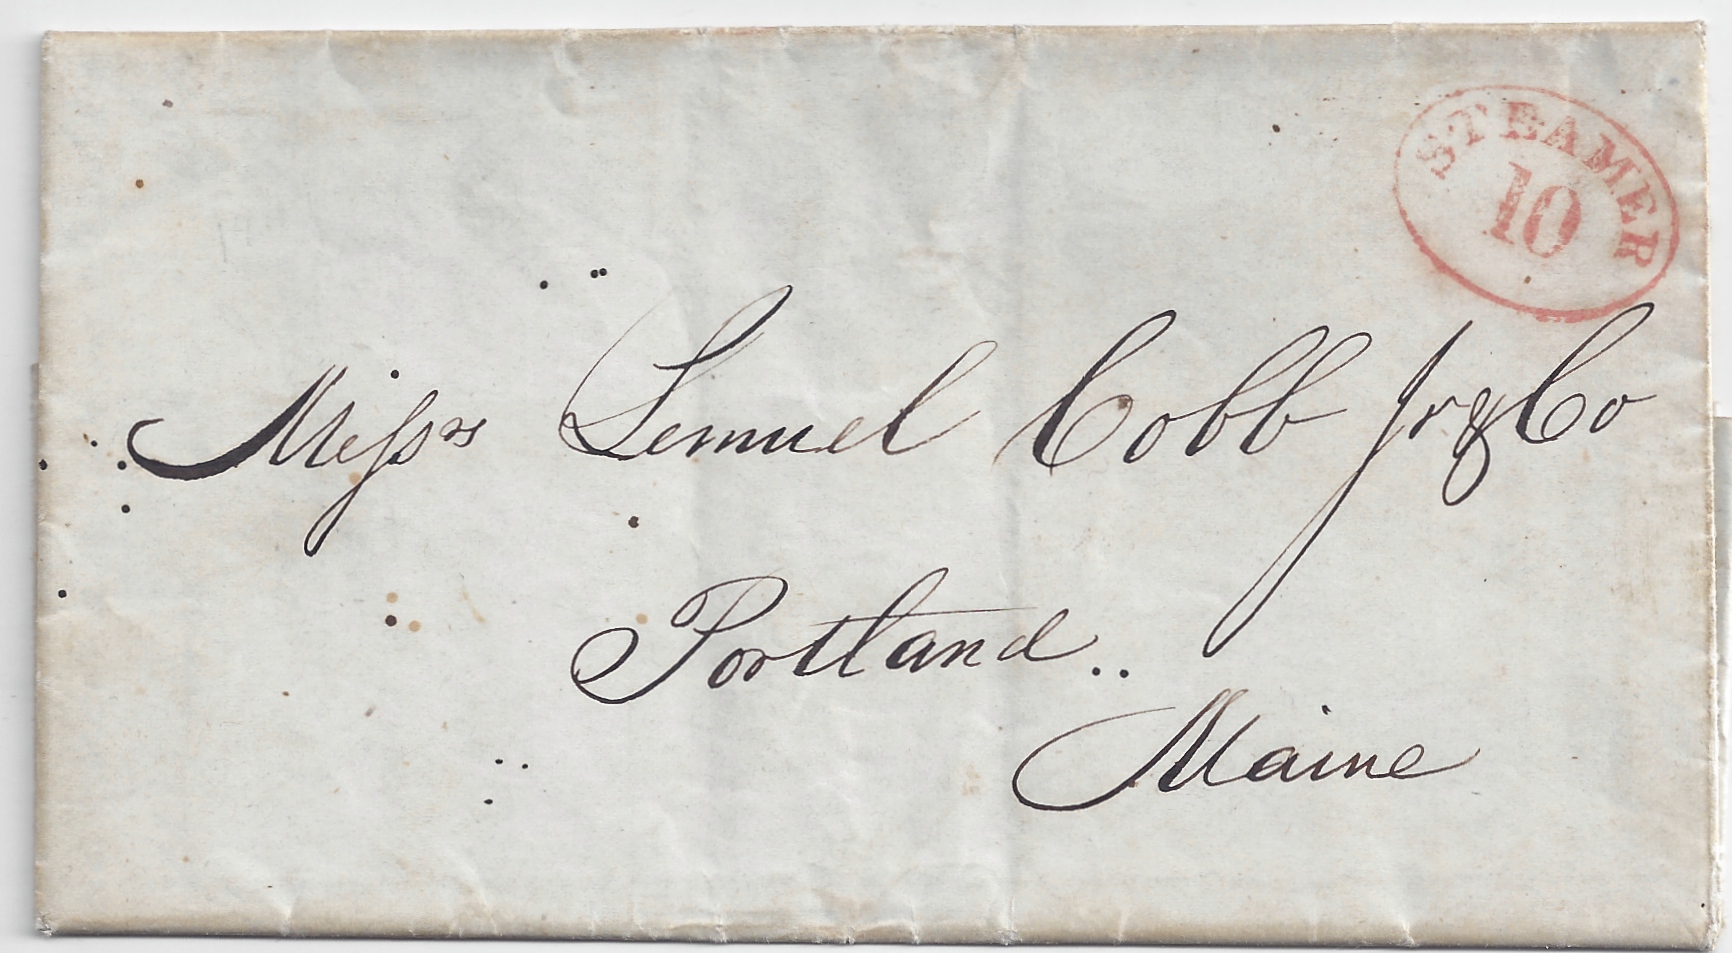 STEAMER
10
Messrs Lemuel Cobb Jr & Co
Portland..
Maine